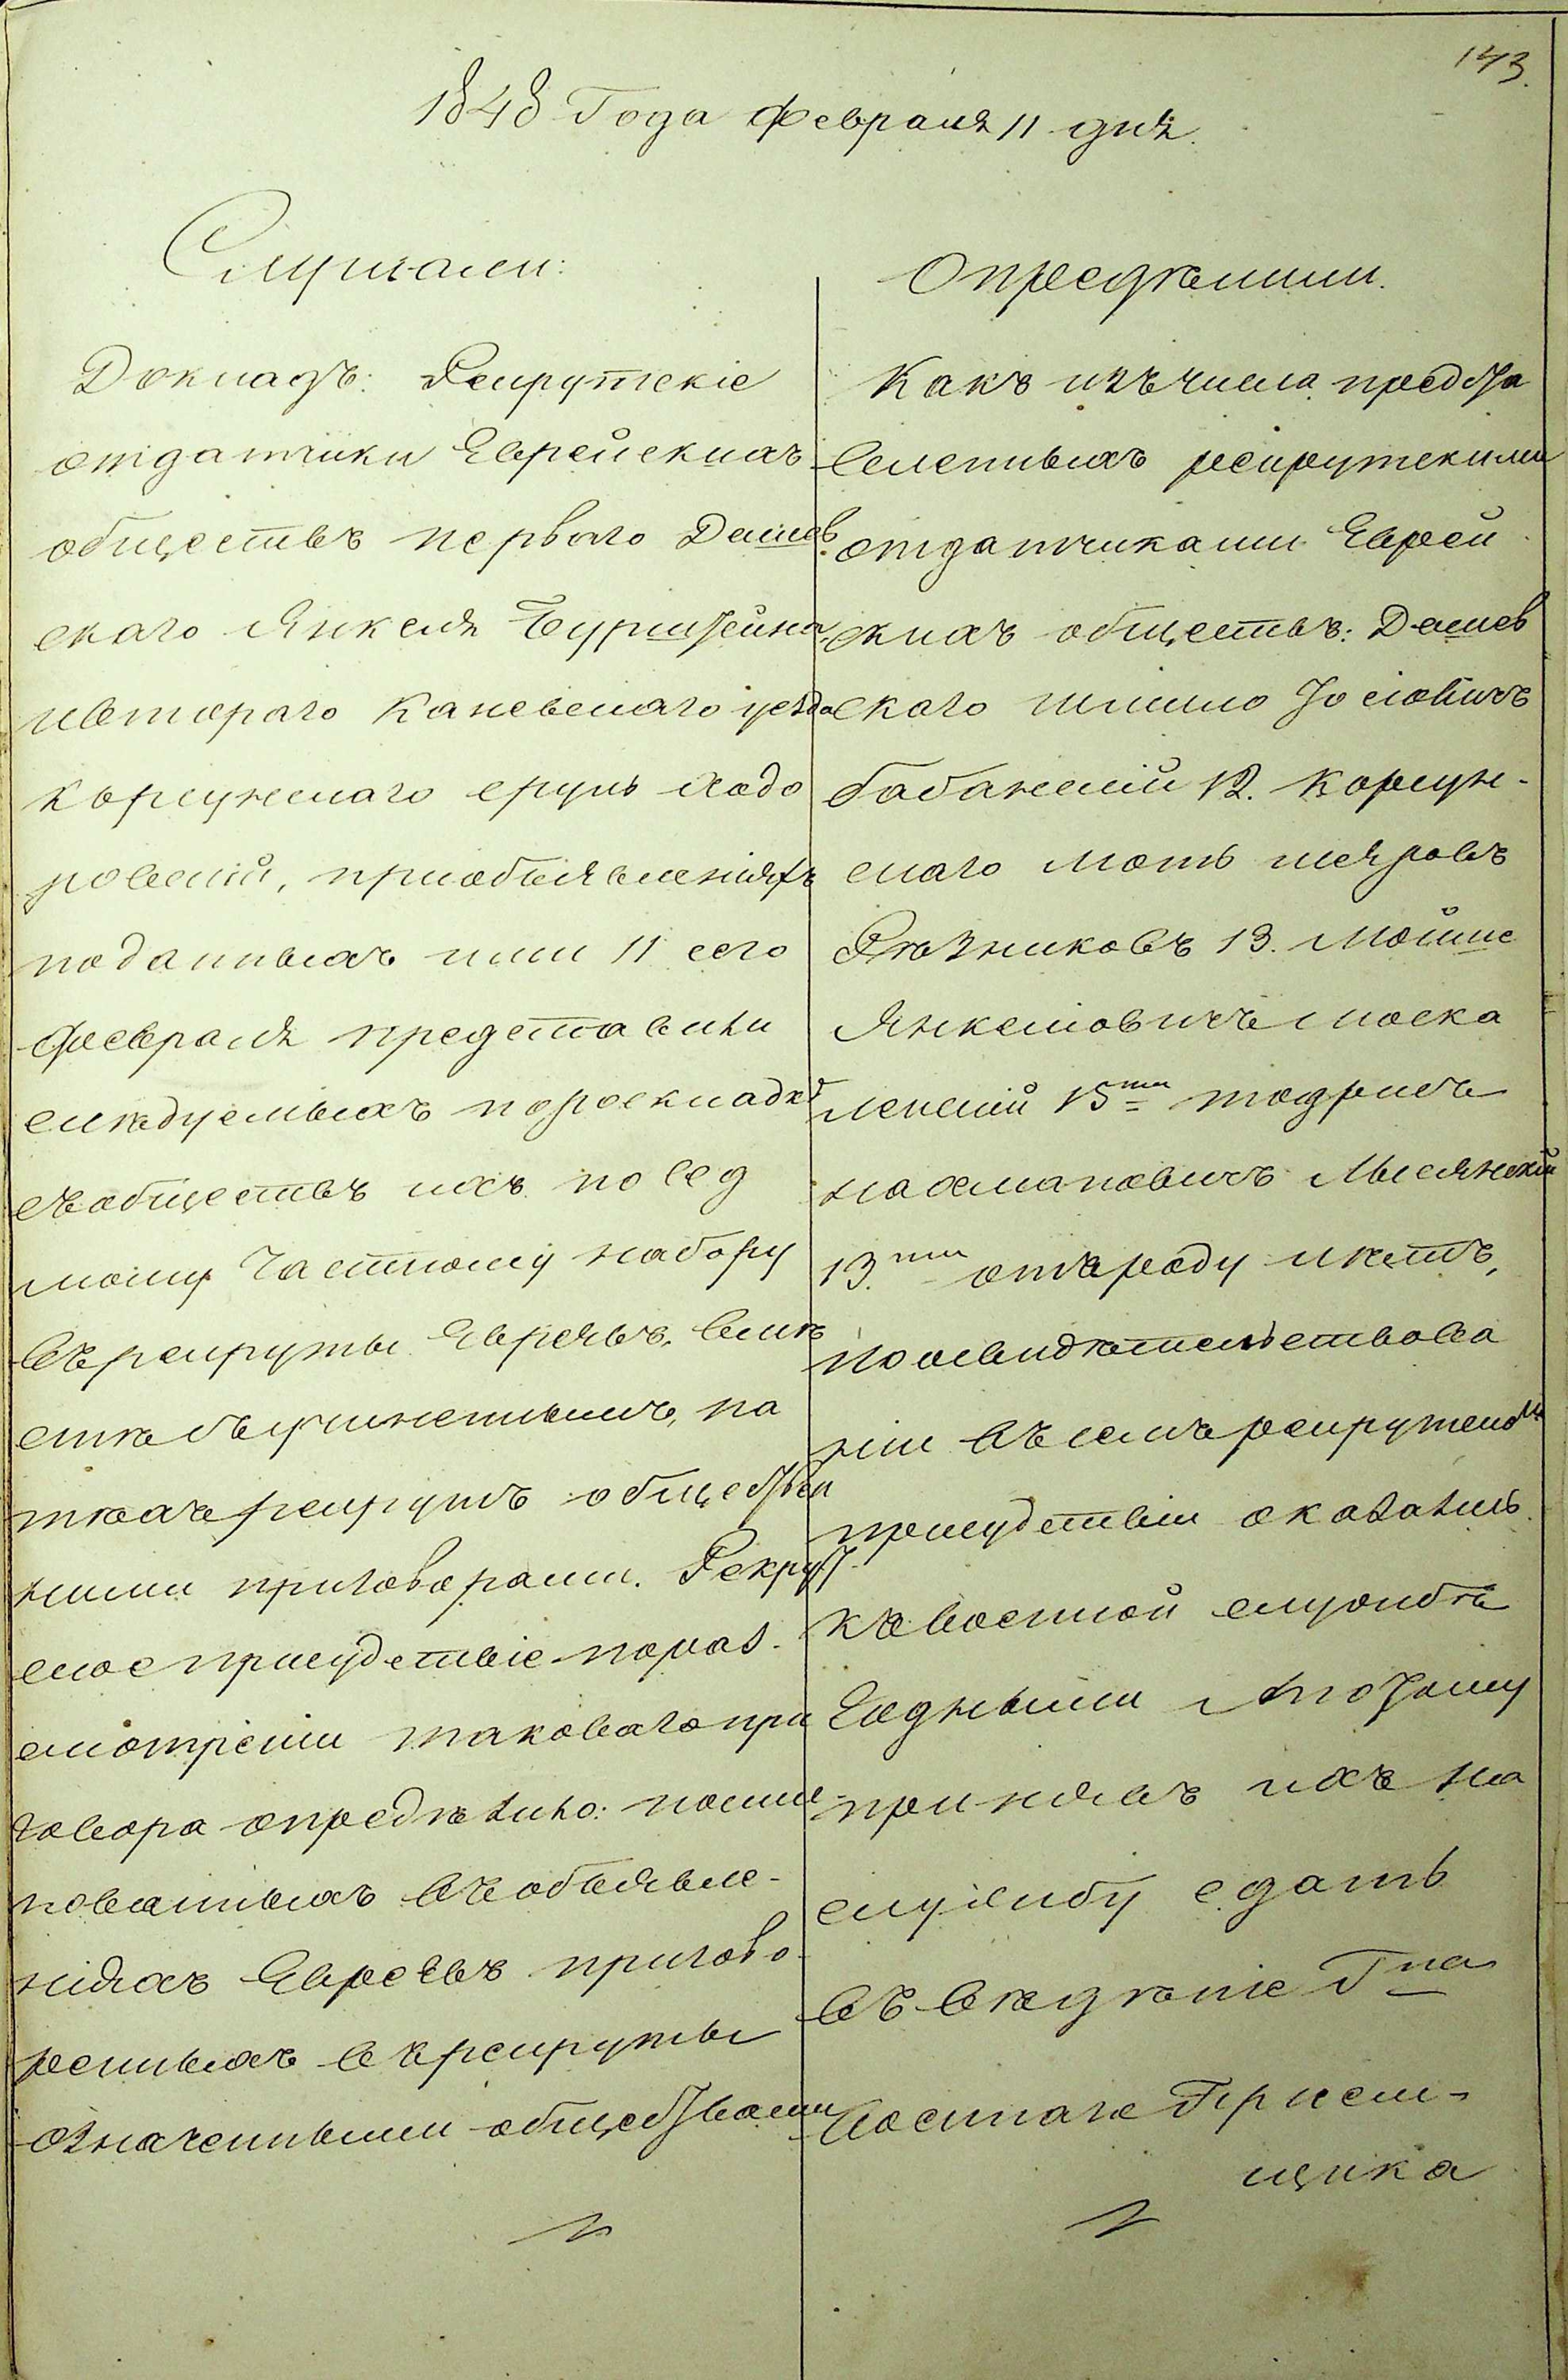 143.
1848 Года Февраля 11 дня.
Слушали:
Докладъ: Рекрутскіе
отдатчики Еврейскихъ
обществъ перваго Дашев
скаго Янкеля Бурштейна
ивтораго Каневскаго уезда
Корсунскаго Сруль Ходо
ровский, приобъявленіяхъ
поданныхъ ими 11 сего
февраля представили
следуемыхъ пораскладке
съобществъ ихъ по сед
мому Частному набору
въ рекруты Евреевъ, вмѣ
сте съучиненными, на
техъ рекрутъ обществен
ними приговорами. Рекрут
ское присудствіе пораз-
смотрѣнии таковаго при
говора определило: поиме
нованныхъ въобъявле-
ніяхъ Евреевъ пригово
ренныхъ въ рекруты
означенными обществами
Определили.
Какъ изъ числа предста
вленныхъ рекрутскими
отдатчиками Еврей
скихъ обществъ: Дашев
скаго Шлиомо Іосіовичъ
Бабанский 12. Корсун-
скаго Моть
Рѣзниковъ 13. Мойше
Янкеліовичъ Моска
ленский 15ти Тодрисъ
Нахмановичъ Мысянский
13.ти отъ роду лѣтъ,
по освидѣтельствова
нии въ семъ рекрутскомъ
присудствіи оказались
къ военной службѣ
Годными и потому
принявъ ихъ на
службу сдать
въ вѣдѣніе Гна
Военнаго Прием-
щика